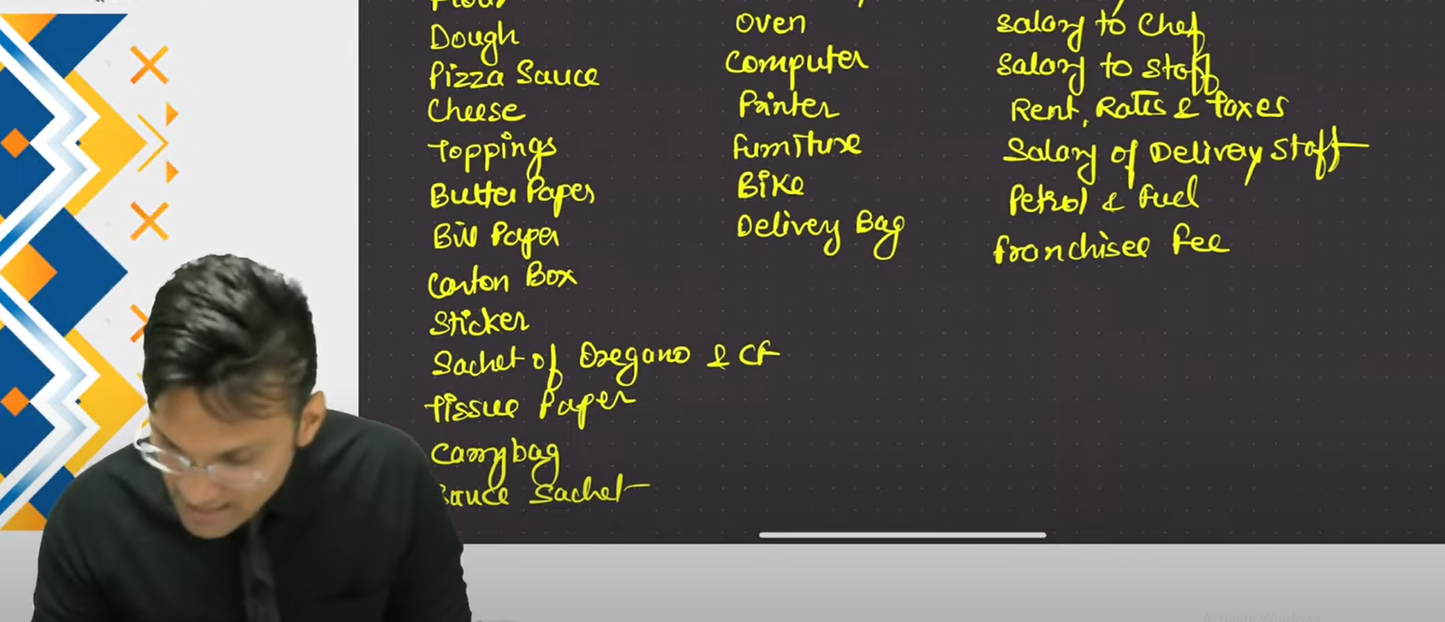 Flour
Dough
Pizza Sauce
Cheese
Toppings
Butter Paper
Bill Paper
Carton Box
Sticker
Sachet of Oregano & CF
Tissue Paper
Carrybag
Sauce Sachet
Oven
Computer
Printer
Furniture
Bike
Delivery Bag
Salary to Chef
Salary to Staff
Rent, Rates & Taxes
Salary of Delivery Staff
Petrol & Fuel
Franchisee Fee
Activate Windows